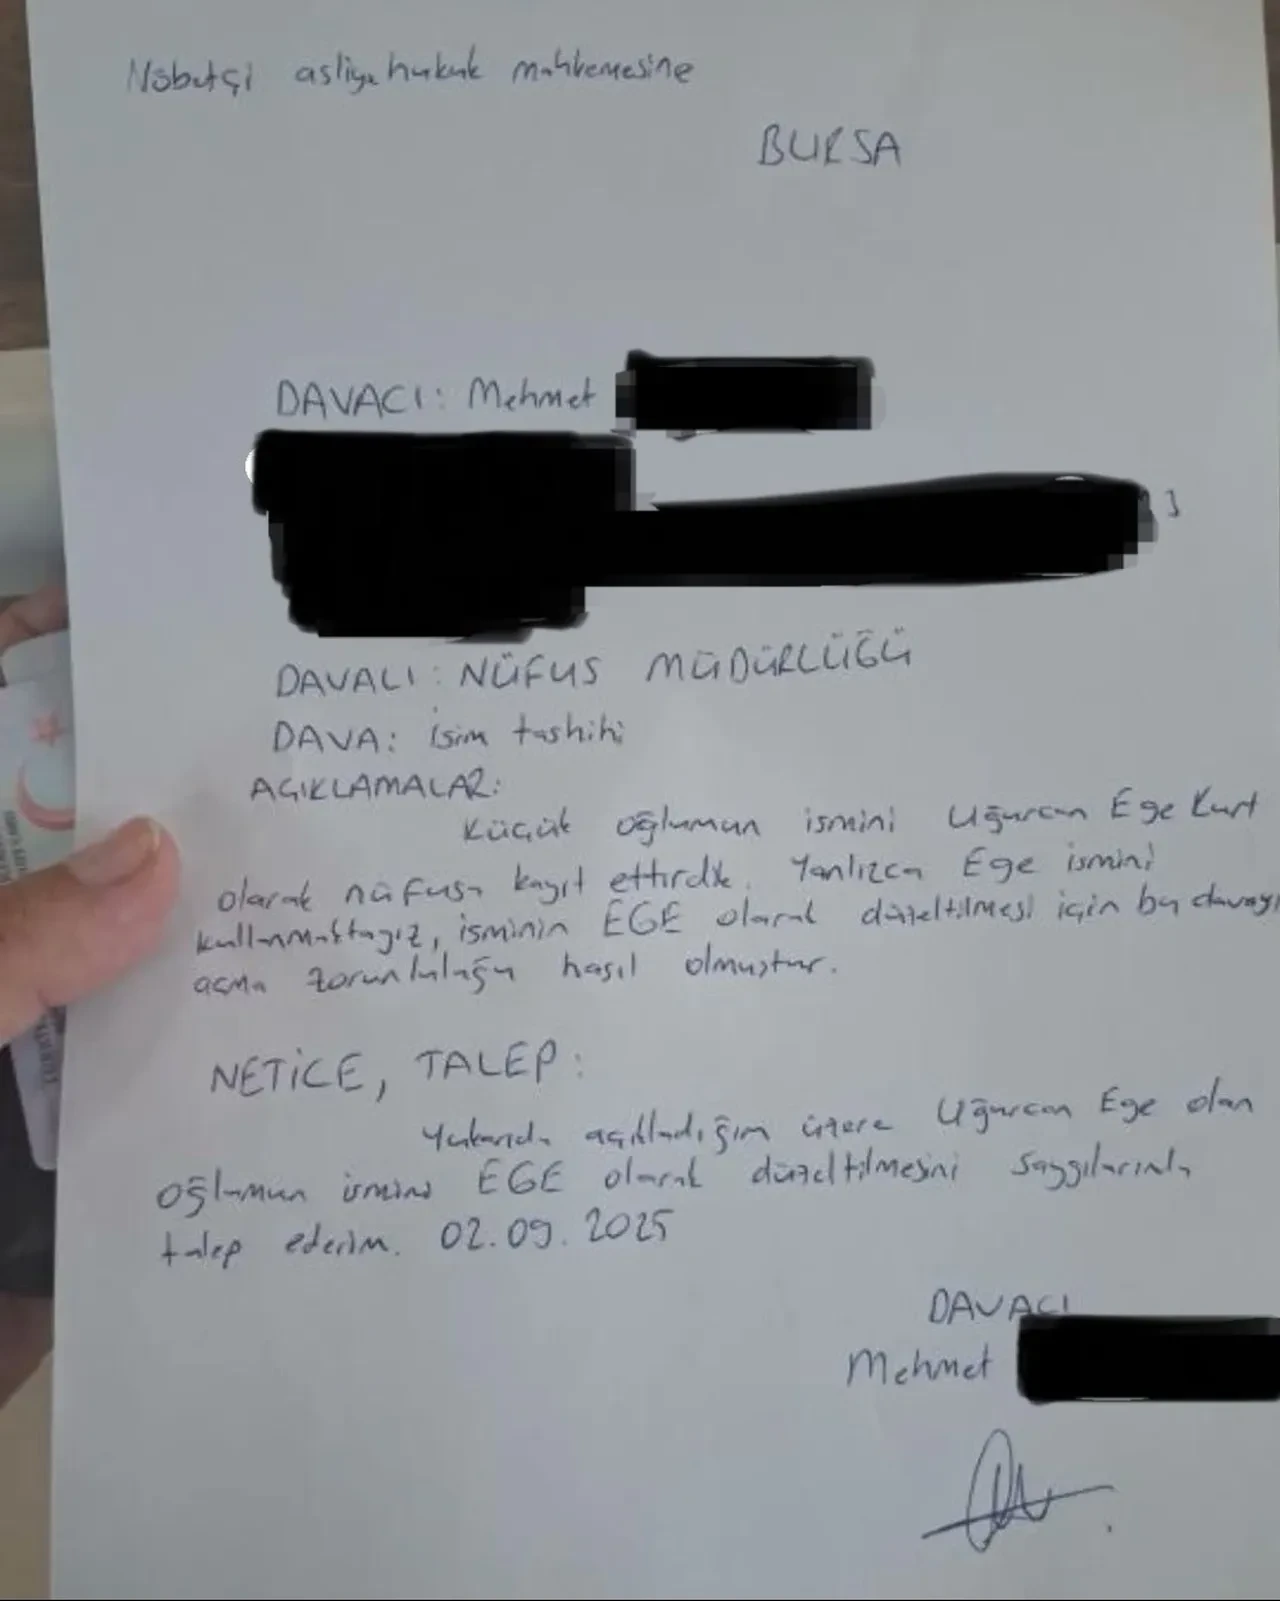 Nöbetçi asliye hukuk mahkemesine
BURSA
DAVACI: Mehmet
DAVALI: NÜFUS MÜDÜRLÜĞÜ
DAVA: İsim tashihi
AÇIKLAMALAR:
Küçük oğlumun ismini Uğurcan Ege Kurt
olarak nüfusa kayıt ettirdik. Yanlızca Ege ismini
kullanmaktayız, isminin EGE olarak düzeltilmesi için bu davayı
açma zorunluluğu hasıl olmuştur.
NETİCE, TALEP:
Yukarıda açıkladığım üzere Uğurcan Ege olan
oğlumun ismini EGE olarak düzeltilmesini saygılarımla
talep ederim. 02.09.2025
DAVACI
Mehmet